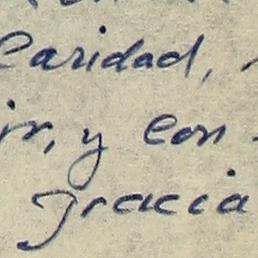 Caridad,
ir, y con
gracia